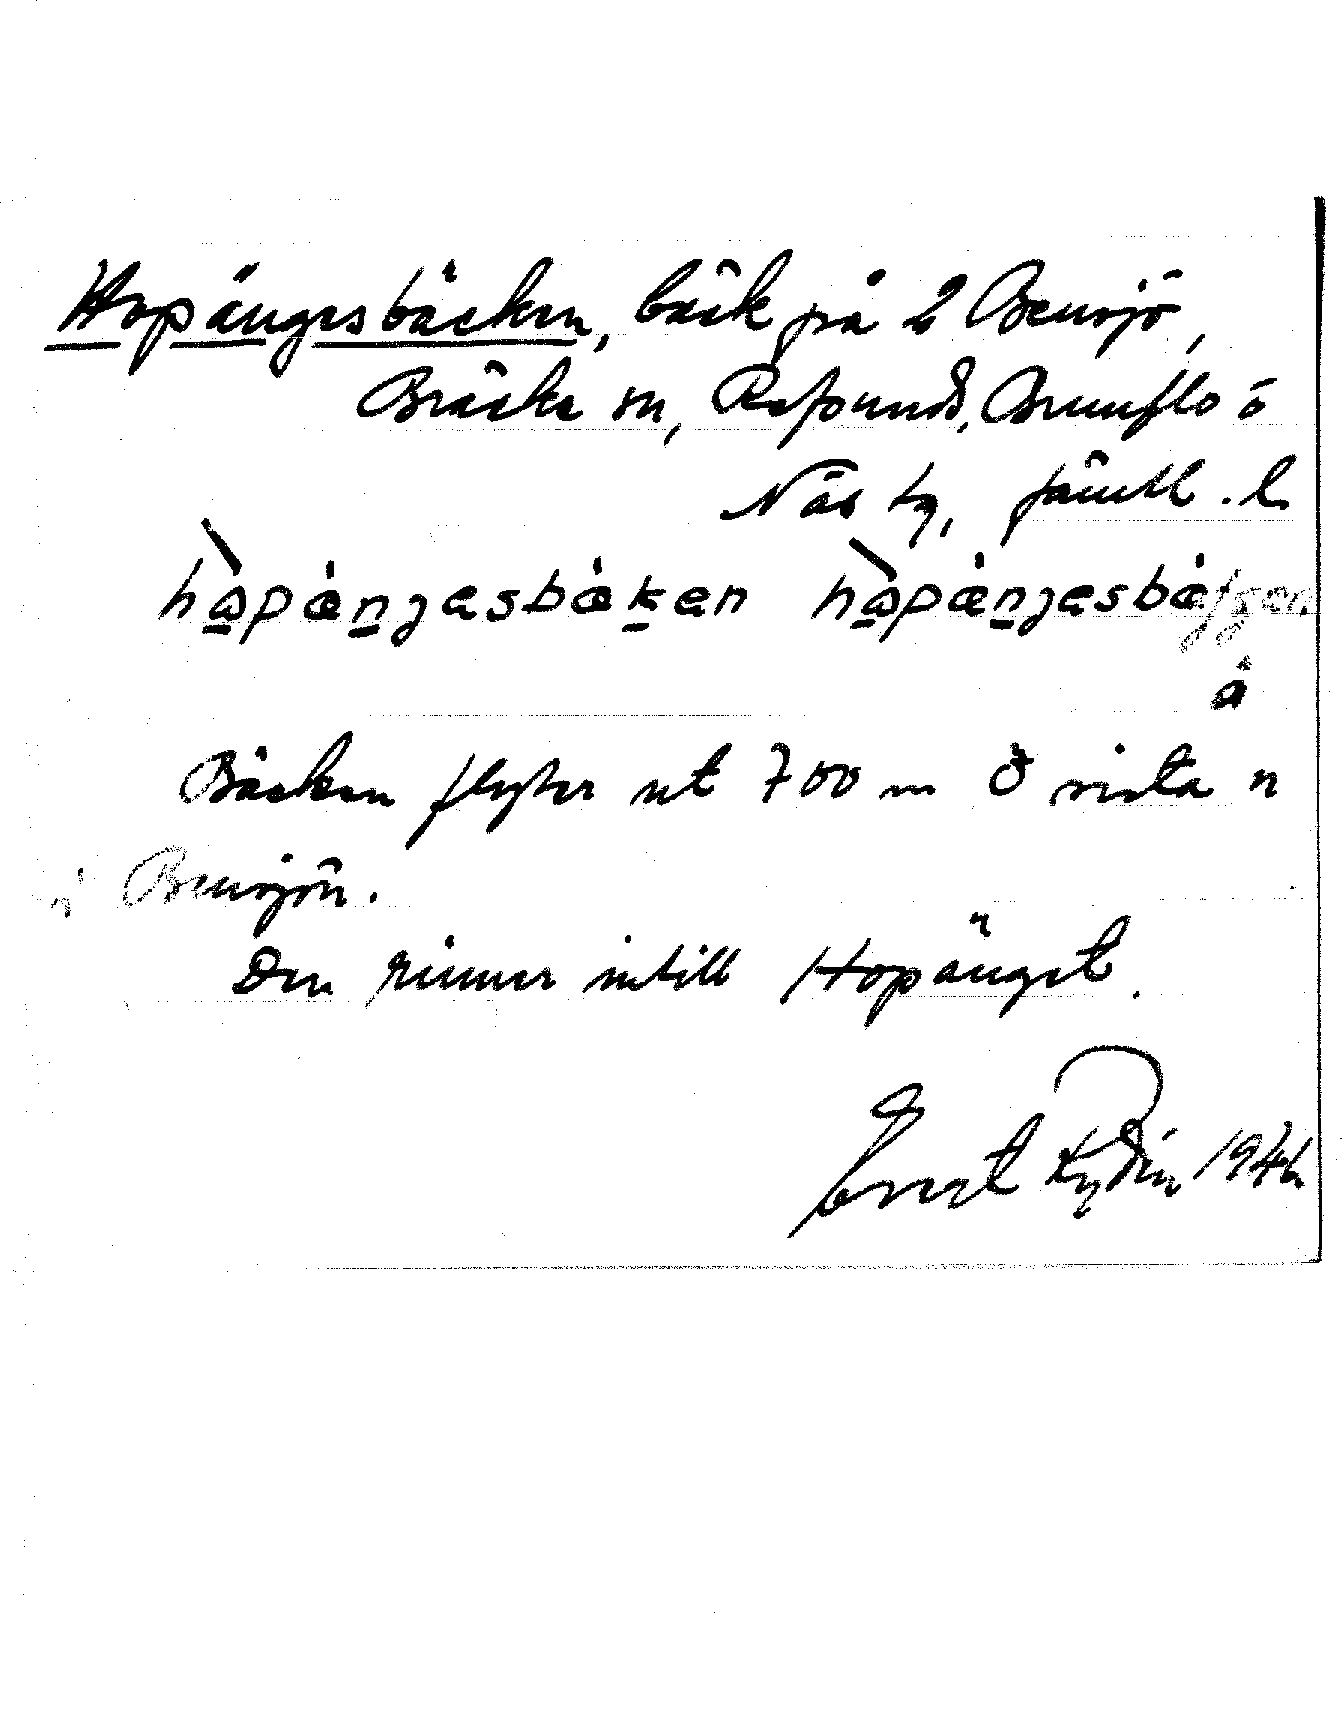 Hopängesbäcken, bäck på 2 Bensjö,
Bräcke sn, Refsunds, Brunflo o
Näs tg, Jämtl. l.
hòpængesbæken hòpængesbæ
å
Bäcken flyter ut 700 m Ö sista n
i Bensjön.
Den rinner intill Hopänget.
Ernst Rydin 1946